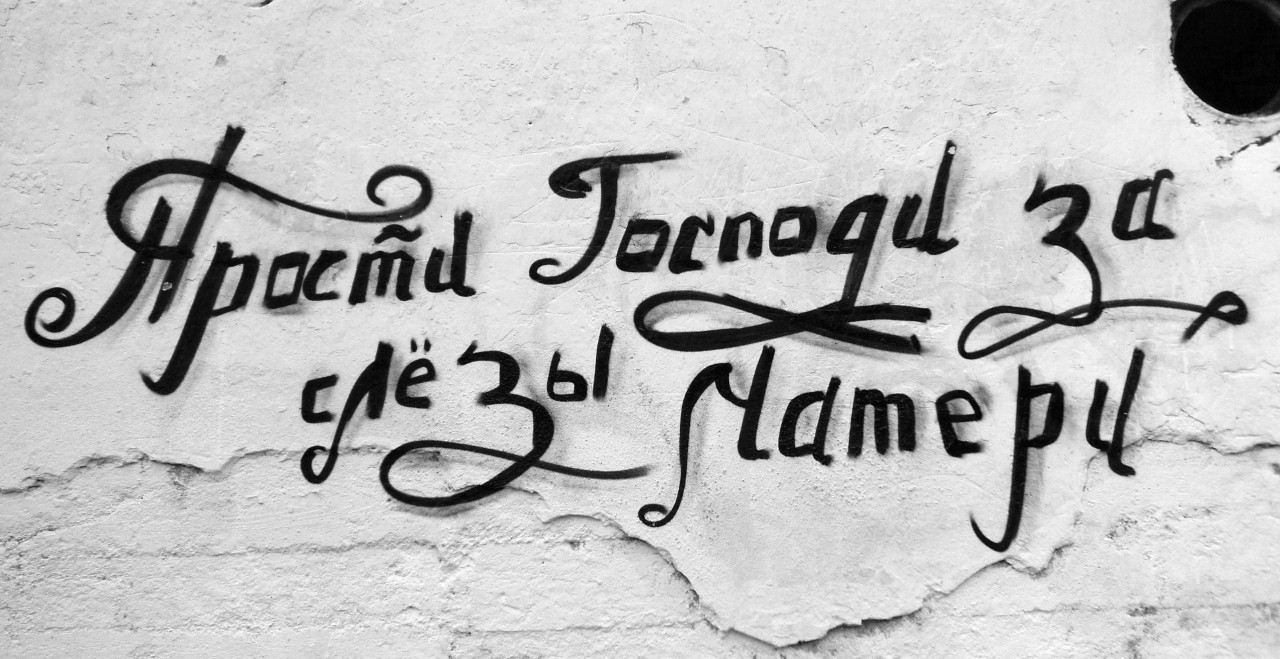 Прости Господи за
слёзы Матери